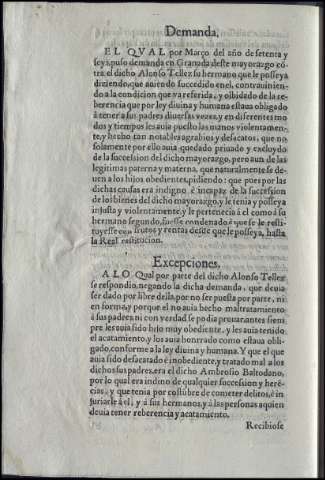 Demanda.
EL QVAL por Março del año de setenta y
seys, puso demanda en Granada deste mayorazgo cõ-
tra el dicho Alonso Tellez su hermano que le posseya
diziendo, que auiendo succedido en el, contrauinien-
do a la condicion que va referida, y olbidado de la re-
berencia que por ley diuina y humana estaua obligado
à tener a sus padres diuersas vezes, y en diferentes mo-
dos y tiempos les auia puesto las manos violentamen-
te, y hecho tan notables agrabios y desacatos, que no
solamente por ello auia quedado priuado y excluydo
de la succession del dicho mayorazgo, pero aun de las
legitimas paterna y materna, que naturalmente se de-
uen a los hijos obedientes, pidiendo: que pues por las
dichas causas era indigno, è incapaz de la succession
de los bienes del dicho mayorazgo, y le tenia y posseya
injusta y violentamente, y le pertenecia à el como à su
hermano segundo, fuesse condenado à que se le resti-
tuyesse con frutos y rentas desde que le posseya, hasta
la Real restitucion.
Excepciones.
A LO Qual por parte del dicho Alonso Tellez
se respondio, negando la dicha demanda, que deuia
ser dado por libre della, por no ser puesta por parte, ni
en forma, y porque el no auia hecho maltratamiento
à sus padres, ni con verdad se podia prouar antes siem-
pre les auia sido hijo muy obediente, y les auia tenido
el acatamiento, y los auia honrrado como estaua obli-
gado, conforme a la ley diuina y humana. Y que el que
auia sido desacatado è inobediente, y tratado mal a los
dichos sus padres, era el dicho Ambrosio Baltodano,
por lo qual era indino de qualquier succession y herẽ-
cias, y que tenia por costũbre de cometer delitos, è in-
juriarle à el, y à sus hermanos, y à las personas a quien
deuia tener reberencia y acatamiento.
Recibiose